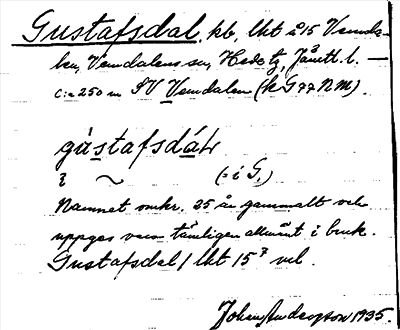 Gustafsdal, kb, lht å 15 Vemda-
len, Vemdalens sn, Hede tg, Jämtl. l. —
c:a 250 m SV Vemdalen (k G 77 N M).
gùstafsdáL
(= i G.)
Namnet omkr. 25 år gammalt och
uppges vara tämligen allmänt i bruk.
Gustafsdal / lht 15⁷ vel.
Johan Anderson 1935.